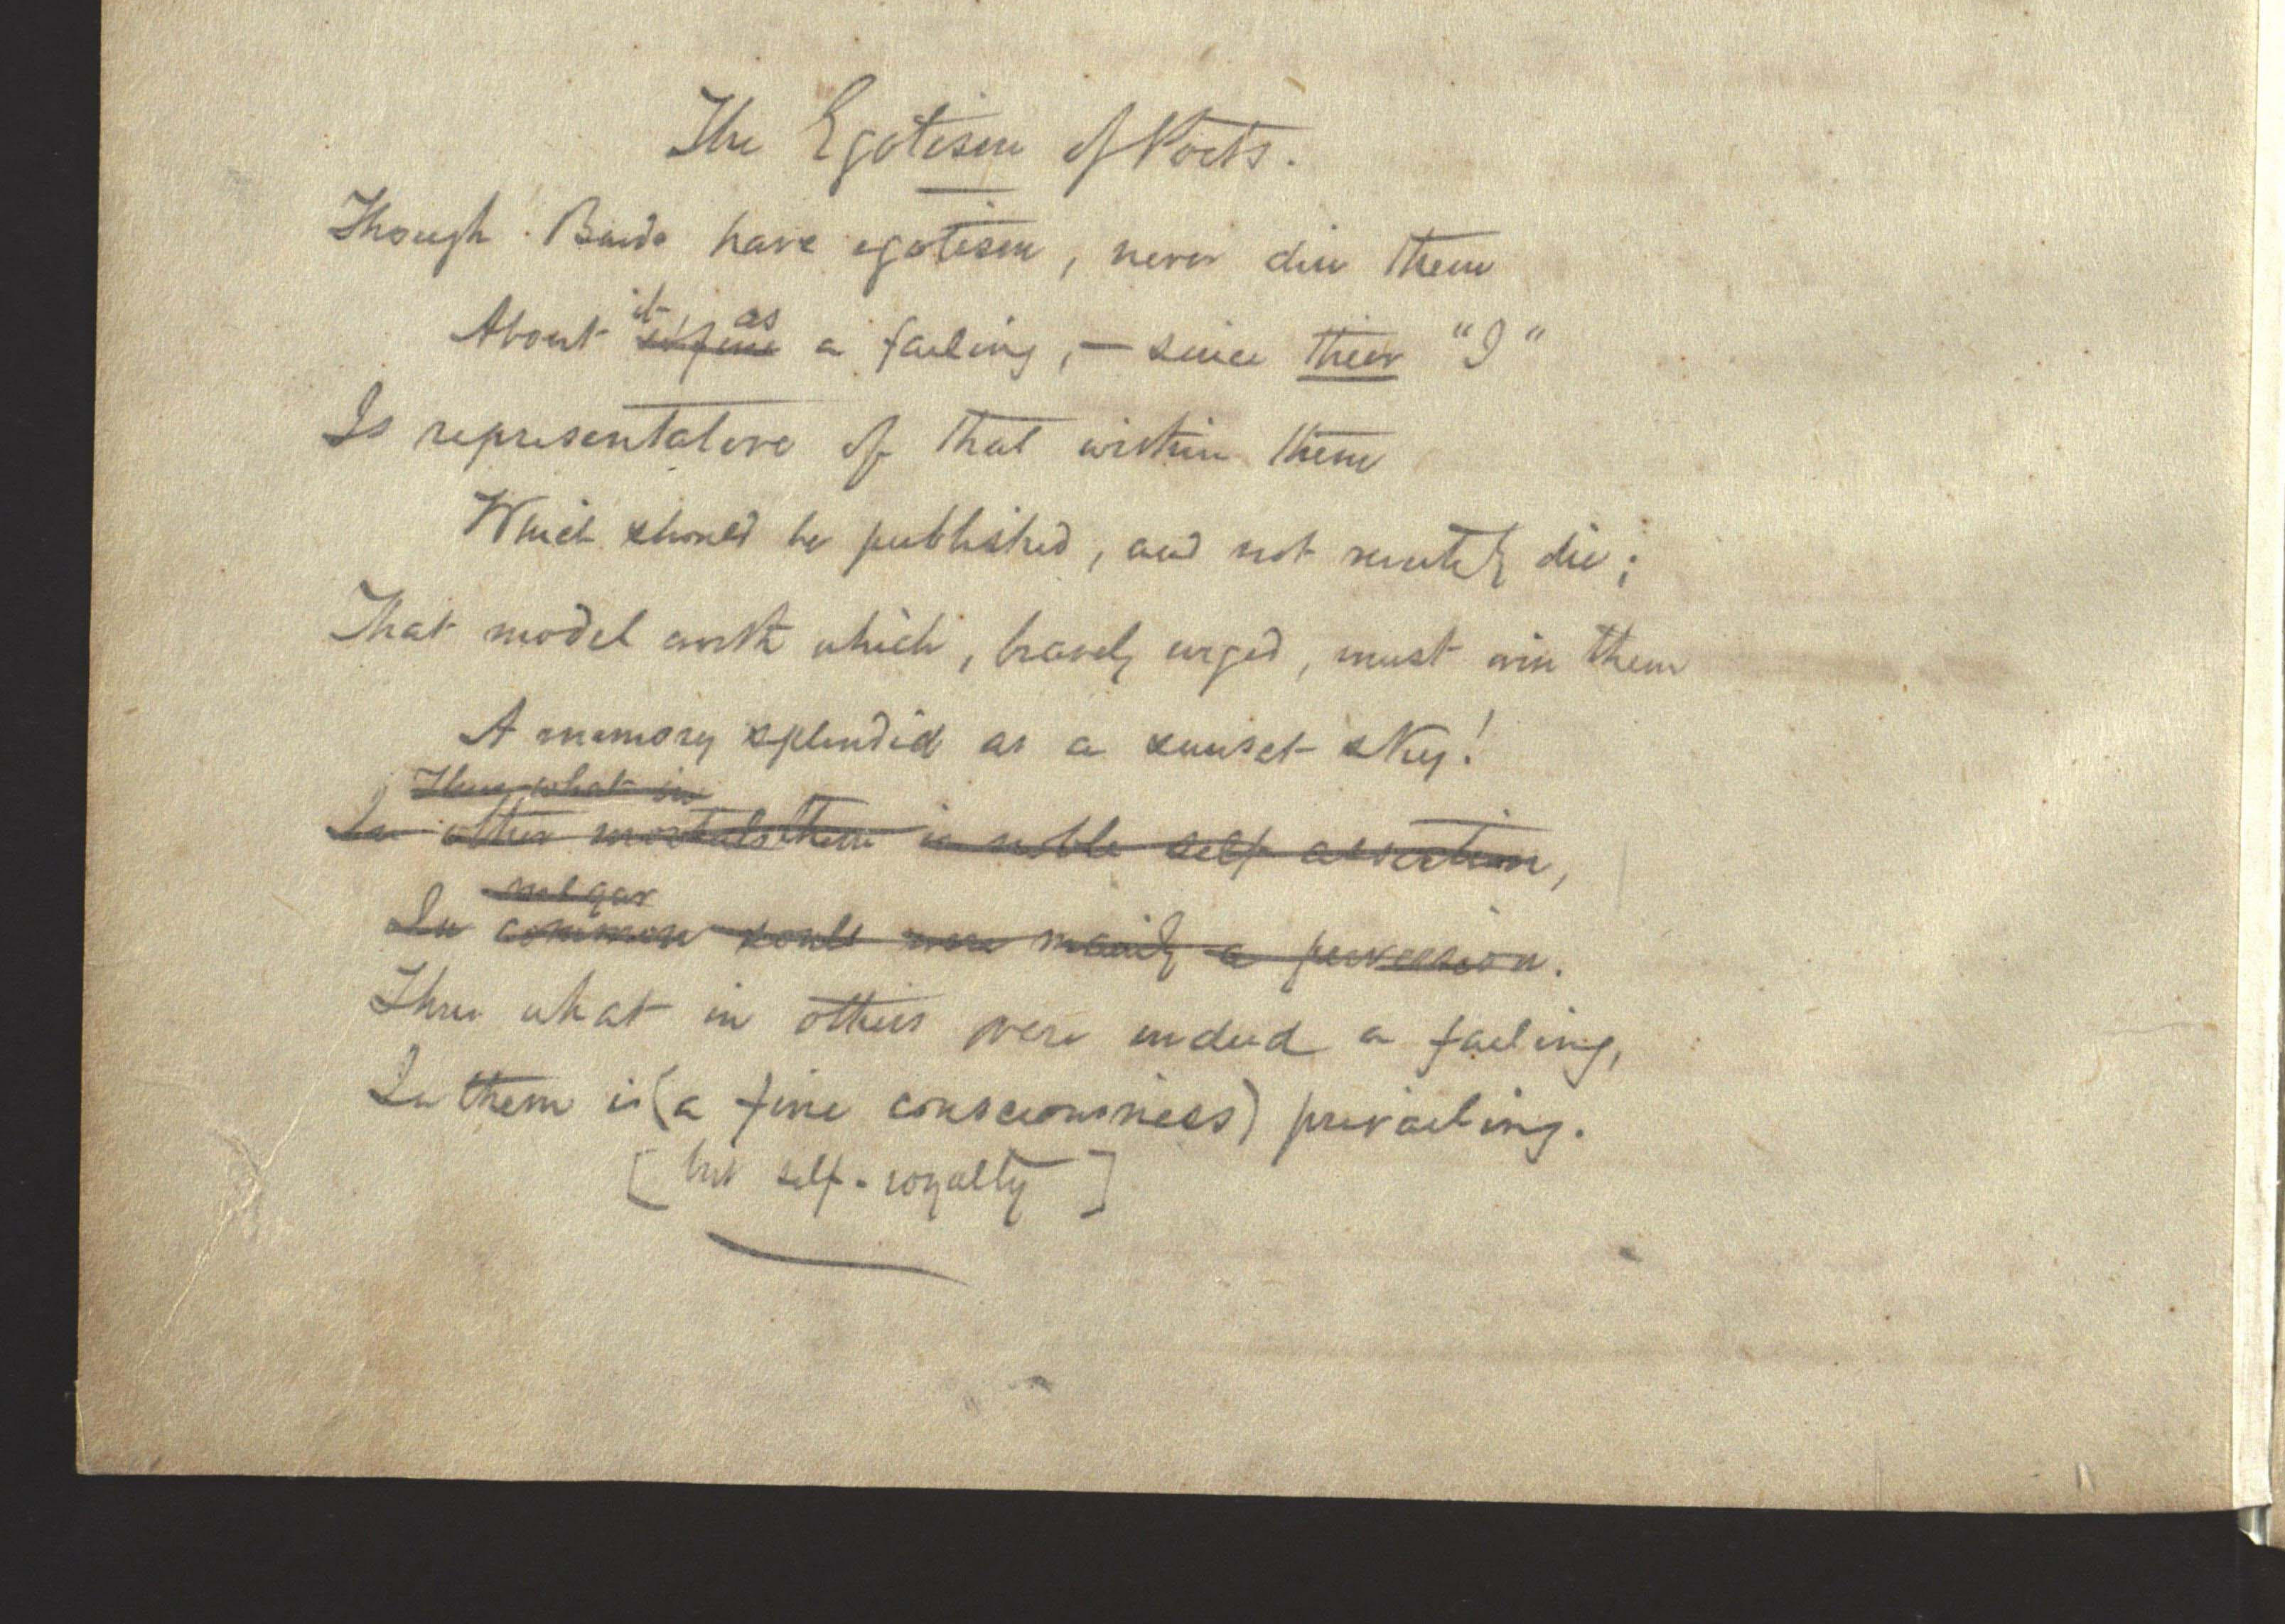 The Egotism of Poets.
Though Bards have egotism, never din them
it as
About a failing, — since their "I"
Is representative of that within them
Which should be published, and not mutely die;
That model worth which, bravely urged, must win them
A memory splendid as a sunset sky!
Thus what in
In other mortals them is noble self assertion,
vulgar
In common souls were mainly a perversion.
Thus what in others were indeed a failing,
In them is (a fine consciousness) prevailing.
[but self-royalty]